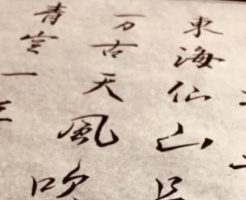 東海仙山
万古天風吹
青空一